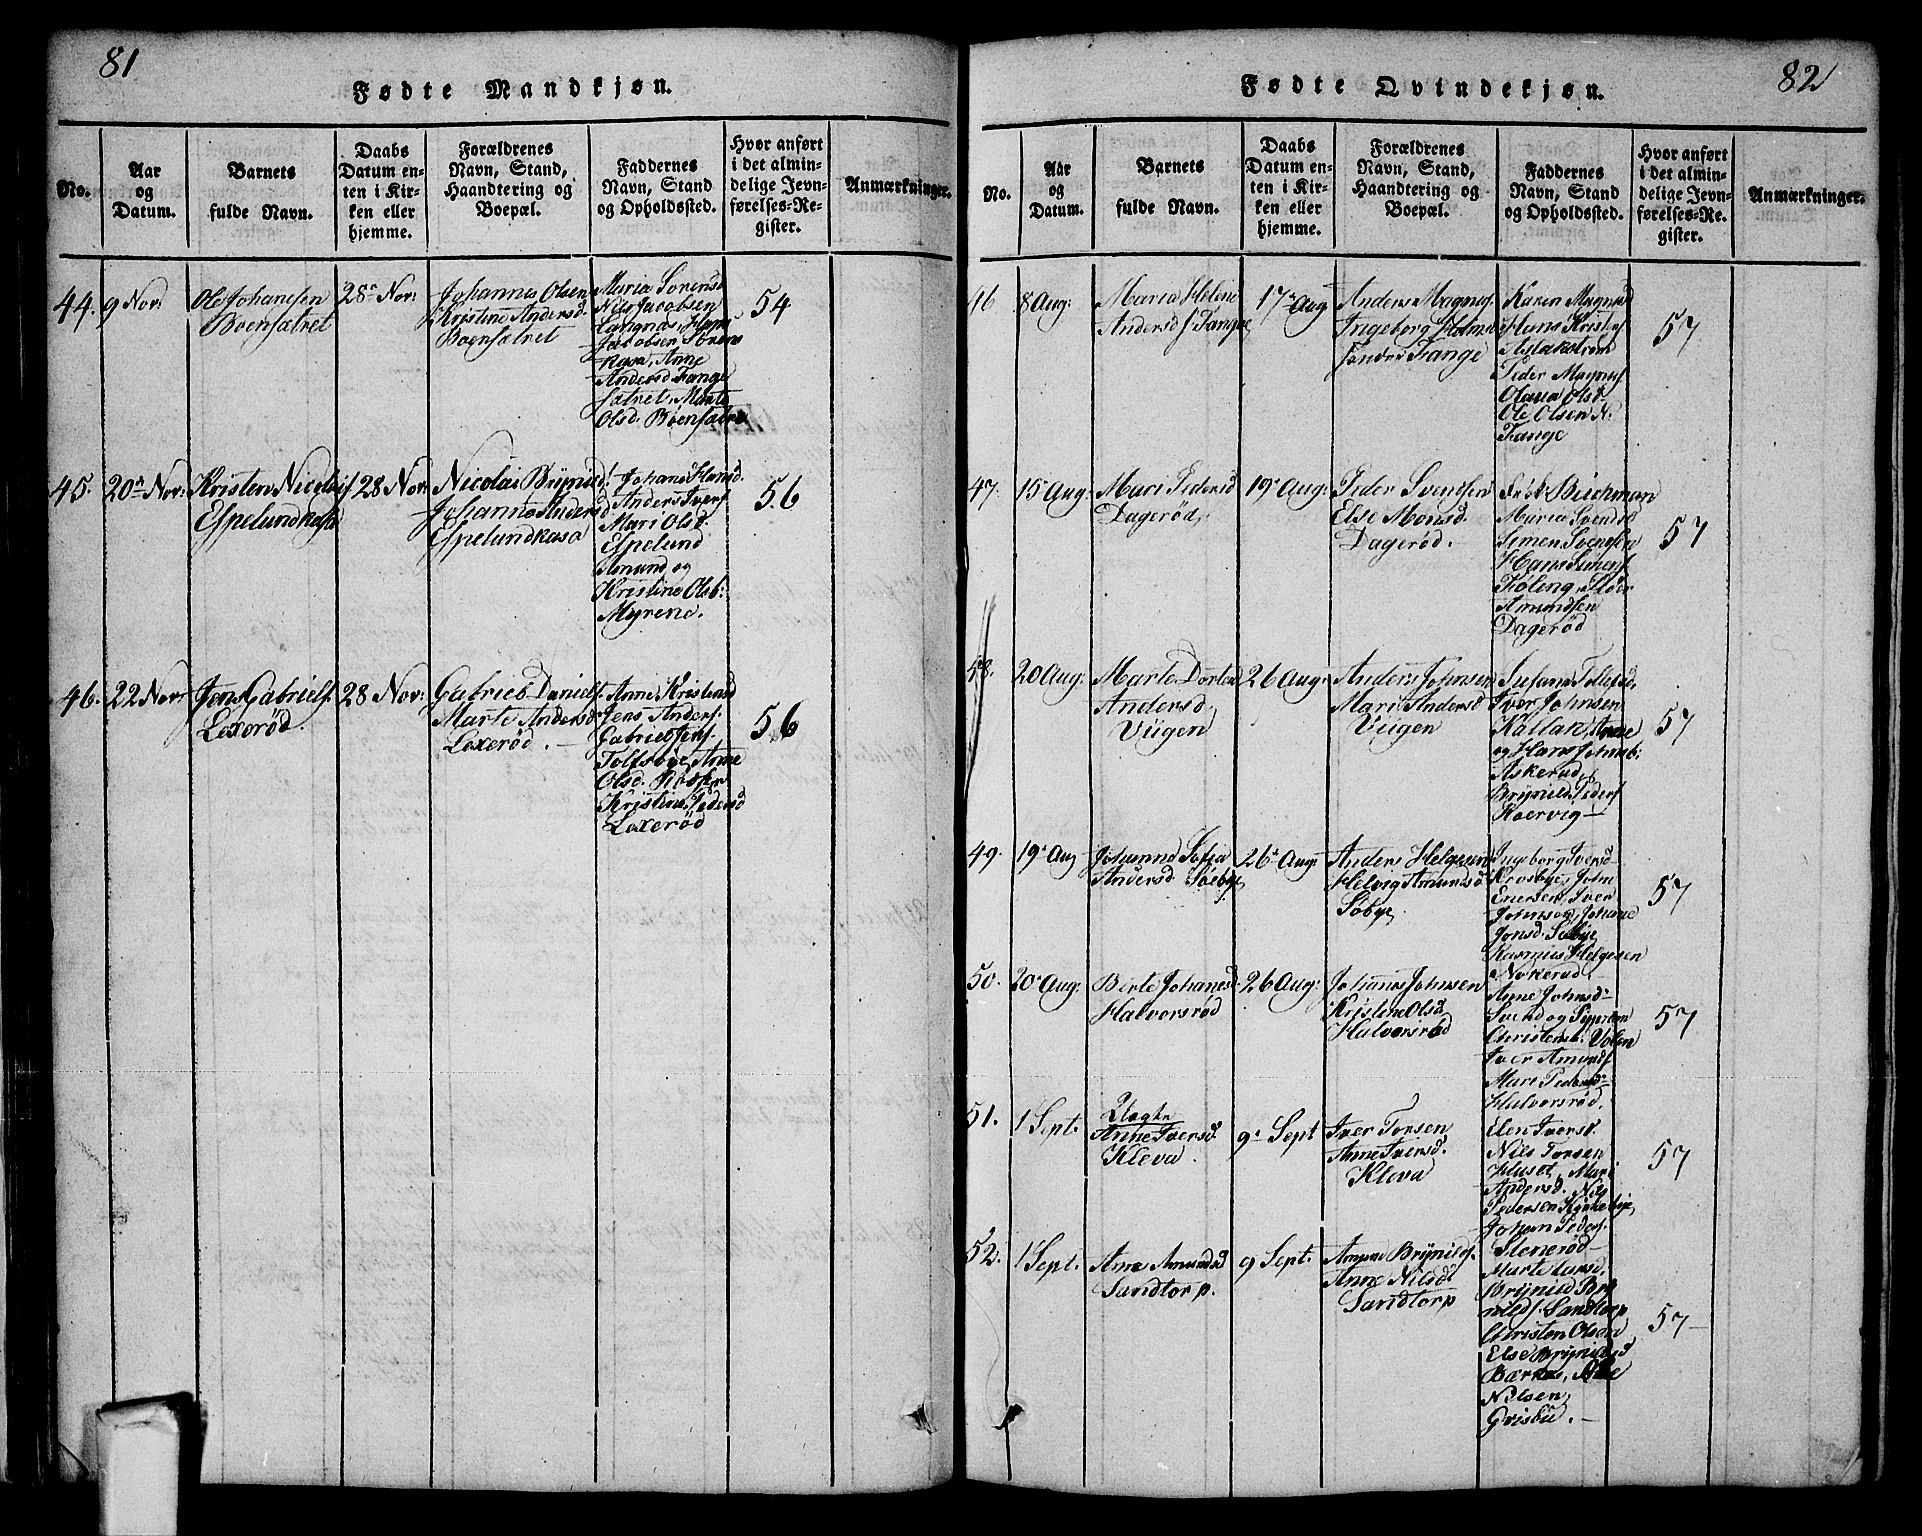 81
Fødte Mandkjøn.
No.
Aar
og
Datum.
Barnets
fulde Navn.
Daabs
Datum en-
ten i Kir-
ken eller
hjemme.
Forældrenes
Navn, Stand,
Haandtering og
Boepæl.
Faddernes
Navn, Stand
og Opholdssted.
Hvor anført
i det almin-
delige Jevn-
førelses-Re-
gister.
Anmærkninger.
44.
9 Nov:
Ole Johannesen
Boensætret
28 Nov:
Johannes Olsen
Kristine Andersd.
Boensætret
Maria Sorensd
Nils Jacobsen
Langnæs, Hans
Jacobsen Sorens
kasa, Anne
Andersd Tange
sætret, Marte
Olsd. Böensætre
54
45.
20 Nov:
Kristen Nicolais
Espelundkasa
28 Nov:
Nicolai Brynild:
Johanna Andersd
Espelundkasa
Johans Hansd.
Anders Ivers
Mari Olsd:
Espelund
Amund og
Kristine Olsb:
Myrene.
56
46.
22 Nov:
Jens Gabriels.
Lexerød
28 Nov:
Gabriel Daniels.
Marte Andersd
Lexerød.
Anne Kristensd
Jens Anders.
Gabriel Jens.
Tolfsbye, Anne
Olsd.
Kristine Pedersd
Lexerød
56
82
Fødte Qvindekjøn.
No.
Aar
og
Datum.
Barnets
fulde Navn.
Daabs
Datum en-
ten i Kir-
ken eller
hjemme.
Forældrenes
Navn, Stand,
Haandtering og
Boepæl.
Faddernes
Navn, Stand
og Opholdssted.
Hvor anført
i det almin-
delige Jevn-
førelses-Re-
gister.
Anmærkninger.
46
8 Aug:
Maria Helene
Andersd Tange
17 Aug
Anders Magnus.
Ingeborg Holm
søndre Tange
Karen Magnusd
Hans Krists.
Aslakstrøm
Peder Magnus.
Olava Olsd.
Ole Olsen N.
Tange
57
47.
15 Aug:
Mari Pedersd
Dagerød,
19 Aug:
Peder Svendsen
Else Monsd.
Dagerød.
Birchman
Maria Svendsd
Simen Svendsen
Hans Simens.
Koleng, Peder
Amundsen
Dagerød
57
48.
20 Aug:
Marte Dortea
Andersd.
Viigen
26 Aug:
Anders Johnsen
Mari Andersd
Viigen
Susana Tollefsd,
Iver Johnsen
Kallak, Anne
og Hans Johnsb:
Askerud,
Brynild Peders
Koervig—
57
49.
19 Aug
Johanne Sofia
Andersd Söebye,
26 Aug:
Anders Helgesen
Helvig Amundsd
Söbye,
Ingeborg Iversd
Krosbye, John
Enersen, Iver
Johnsen, Johane
Jonsd. Söbye
Rasmus Helgesen
Nokerud
57
50.
20 Aug:
Berte Johanesd
Halvorsrød
26 Aug:
Johanes Johnsen
Kristine Olsd.
Halvorsrød
Anne Johnsd
Svend og
Christensb. Volen
Iver Amunds.
Mari Pedersd
Halvorsrød.
57
51.
1 Sept.
Uægte
Anne Iversd.
Kleva.
9 Sept
Iver Torsen
Anne Iversd.
Kleva
Elen Iversd.
Nils Torsen
Huset, Mari
Andersd. Nils
Pedersen Kirkebye,
Johan Peders.
Stenerød
57
52.
1 Sept.
Ane Amundsd
Sandtorp.
9 Sept.
Amun Brynilds.
Anne Nilsd.
Sandtorp
Marte Larsd.
Brynild Bry
nilds. Sandtorp
Christen Olsen
Else Brynildsd
Bærkas,
Nilsen,
Grisbü.
57